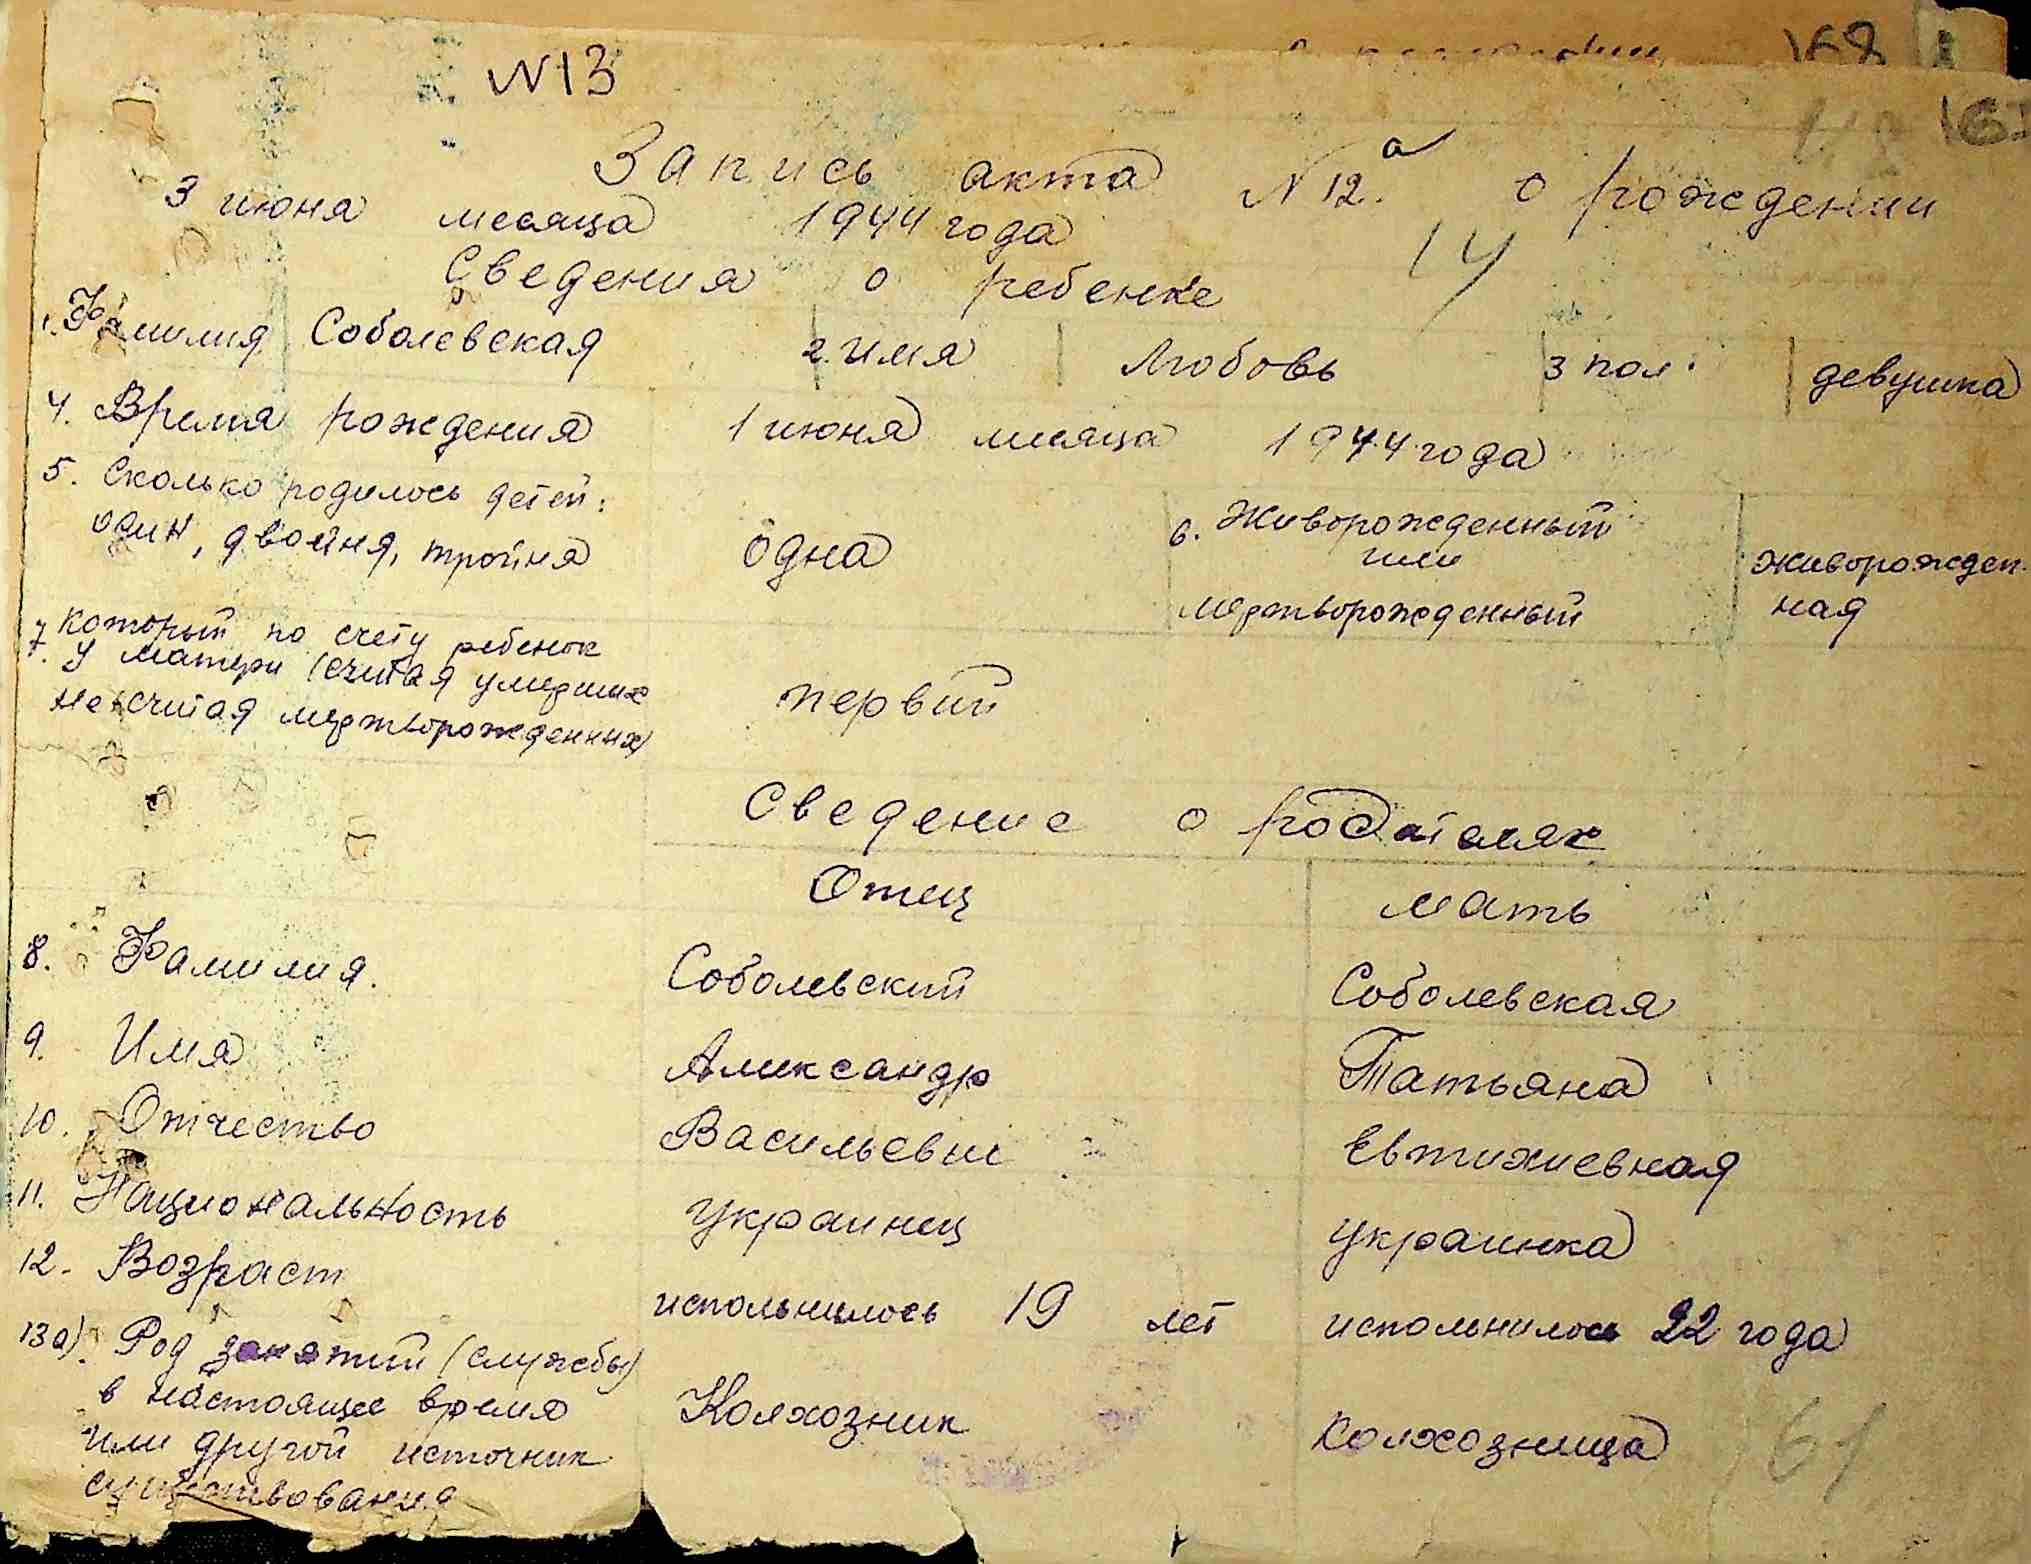 168
N 13
Запись акта N 12.а о рождении
3 июня месяца 1944 года
14
Сведения о ребенке
1. Фамилия Соболевская 2. имя Любовь 3 пол. девушка
4. Время рождения 1 июня месяца 1944 года
5. Сколько родилось детей: один, двойня, тройня одна
6. Живорожденный или мертворожденный живорожденная
7. который по счету ребенок
у матери (считая умерших
не считая мертворожденных) первий
Сведение о родителях
Отец мать
8. Фамилия. Соболевский Соболевская
9. Имя Александр Татьяна
10. Отчество Васильевич Евтихиевная
11. Национальность украинец украинка
12. Возраст испольнилось 19 лет испольнилось 22 года
13а). Род занятий (службы)
в настоящее время
или другой источник
существования Колхозник колхозница
161